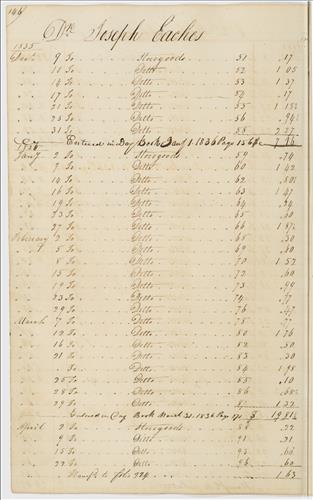 146
Dr. Joseph Eaches
1835
9 To Storegoods 51 .17
11 To Ditto 52 1 05
14 To Ditto 53 1 37
17 To Ditto 54 .17
21 To Ditto 55 1 15½
25 To Ditto 56
31 To Ditto 58 2 27
Entered in Day Book Jany 1. 1836 Page 156
1836
Jany 2 To Storegoods 59 .74
7 To Ditto 60 1 42
14 To Ditto 62
16 To Ditto 63 1 47
19 To Ditto 64
23 To Ditto 65 .60
27 To Ditto 66
February 2 To Ditto 68 .30
5 To Ditto 69 .60
8 To Ditto 70 1 52
15 To Ditto 72 .60
19 To Ditto 73
23 To Ditto 74 .77
29 To Ditto 76
March 7 To Ditto 78
12 To Ditto 80 1 76
16 To Ditto 82 .50
21 To Ditto 83 .30
To Ditto 84 1 98
25 To Ditto 85 .10
28 To Ditto 86
29 To Ditto
Entered in Day Book March 31. 1836 Page 171 $ 19 81½
April 2 To Storegoods 88 .22
9 To Ditto 91 .21
15 To Ditto 93
22 To Ditto .60
Transfd to folio 224 1 63